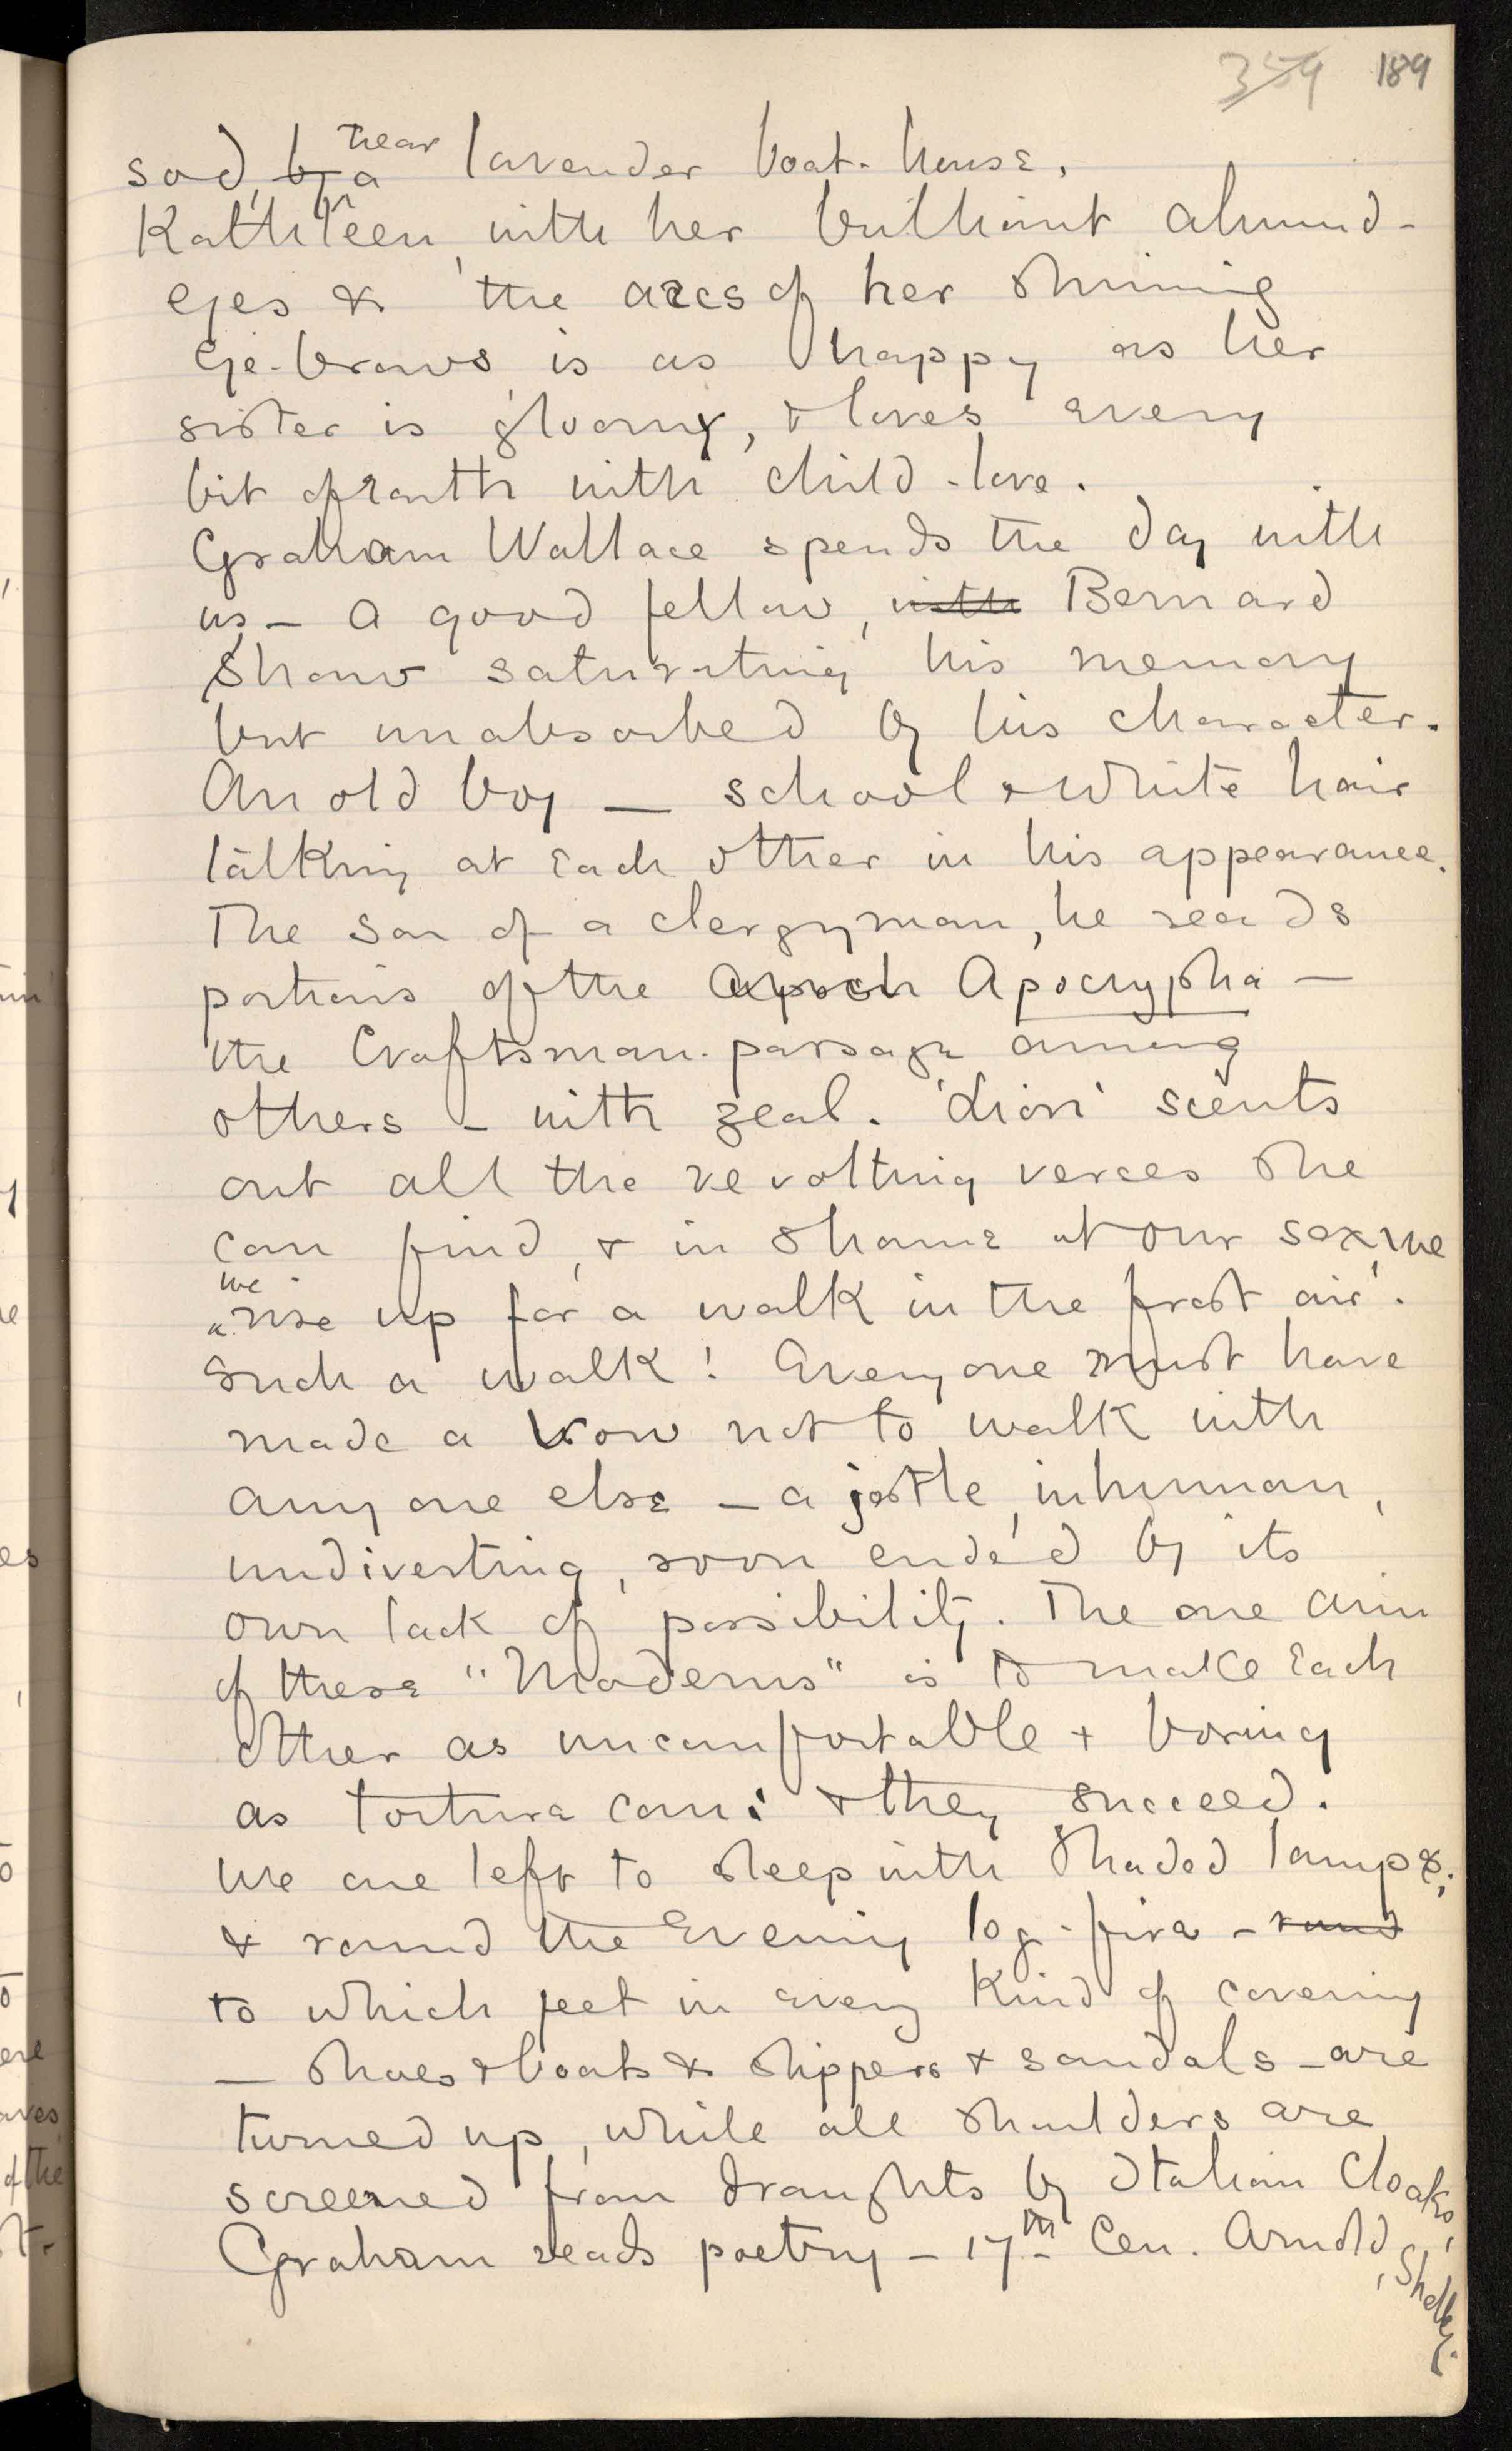 359 189
sad, by near a lavender boat-house.
Kathleen, with her brilliant almond-
eyes & the arcs of her shining
eye-brows is as happy as her
sister is gloomy, & loves every
bit of earth with child-love.
Graham Wallace spends the day with
us – a good fellow, with Bernard
Shaw saturating his memory
but unabsorbed by his character.
An old boy — school & white hair
talking at each other in his appearance.
The son of a clergyman, he reads
portions of the Apoch Apocrypha —
the Craftsman-passage among
others – with zeal. 'Lion' scents
out all the revolting verses she
can find, & in shame at our sex, we
we rise up for a walk in the frost air.
Such a walk! Everyone must have
made a vow not to walk with
anyone else – a jostle, inhuman,
undiverting, soon ended by its
own lack of possibility. The one aim
of these "Moderns" is to make each
other as uncomfortable & boring
as torture can: & they succeed.
We are left to sleep with shaded lamps;
& round the evening log-fire – round
to which feet in every kind of covering
— shoes & boots & slippers & sandals – are
turned up, while all shoulders are
screened from draughts by Italian Cloaks,
Graham reads poetry – 17th Cen. Arnold, Shelley.